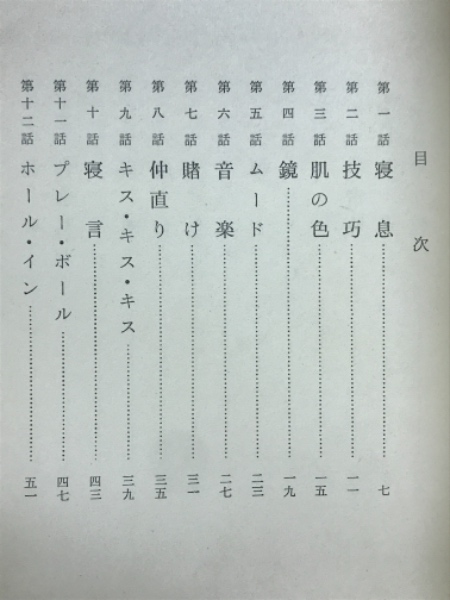 目次
第一話 寝息 七
第二話 技巧 一一
第三話 肌の色 一五
第四話 鏡 一九
第五話 ムード 二三
第六話 音楽 二七
第七話 賭け 三一
第八話 仲直り 三五
第九話 キス・キス・キス 三九
第十話 寝言 四三
第十一話 プレー・ボール 四七
第十二話 ホール・イン 五一